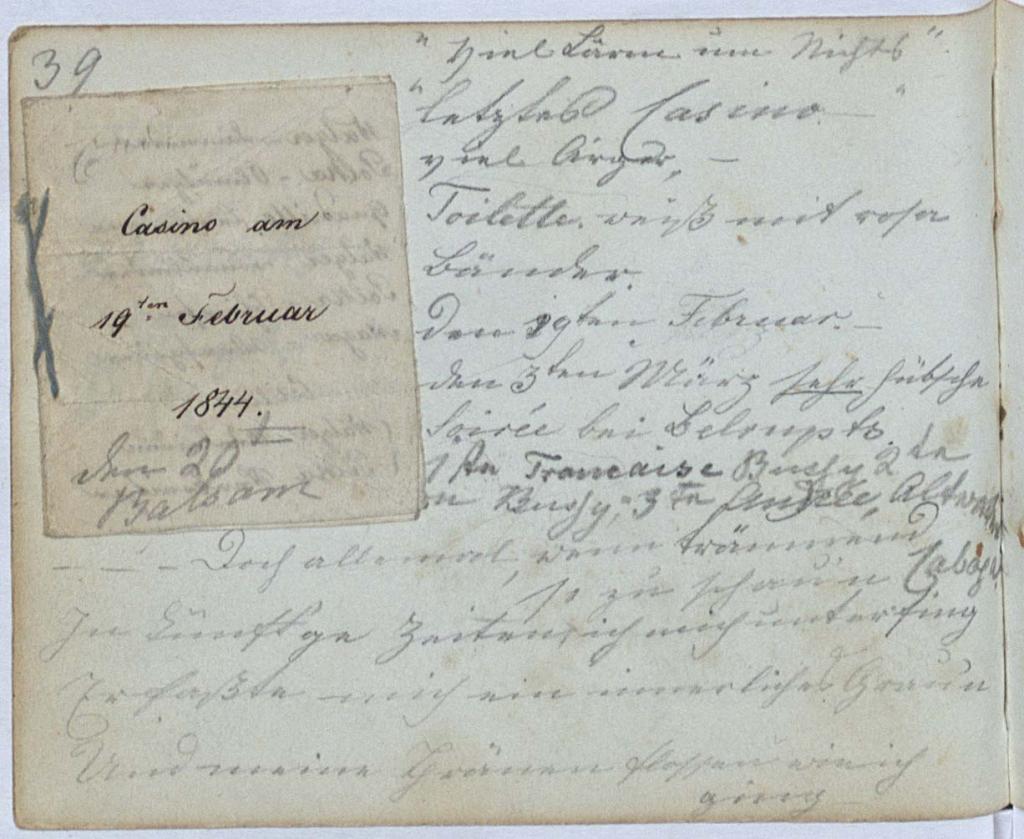 39
Casino am
19ten Februar
1844.
den 20t
Balsam
"Viel Lärm um Nichts"
"letztes Casino"
viel Ärger, –
Toilette. weiß mit rosa
Bänder.
den 19ten Februar. –
den 3ten März sehr hübsche
Soirée bei Belrupts.
1te Francaise Bussy 2te
Bussy, 3te
– – – Doch allemal, wenn träumend
so zu schau'n
In künft'ge Zeiten, ich mich unterfing
Erfaßte mich ein innerliches Grau'n
Und meine Thränen flossen wie ich
ging